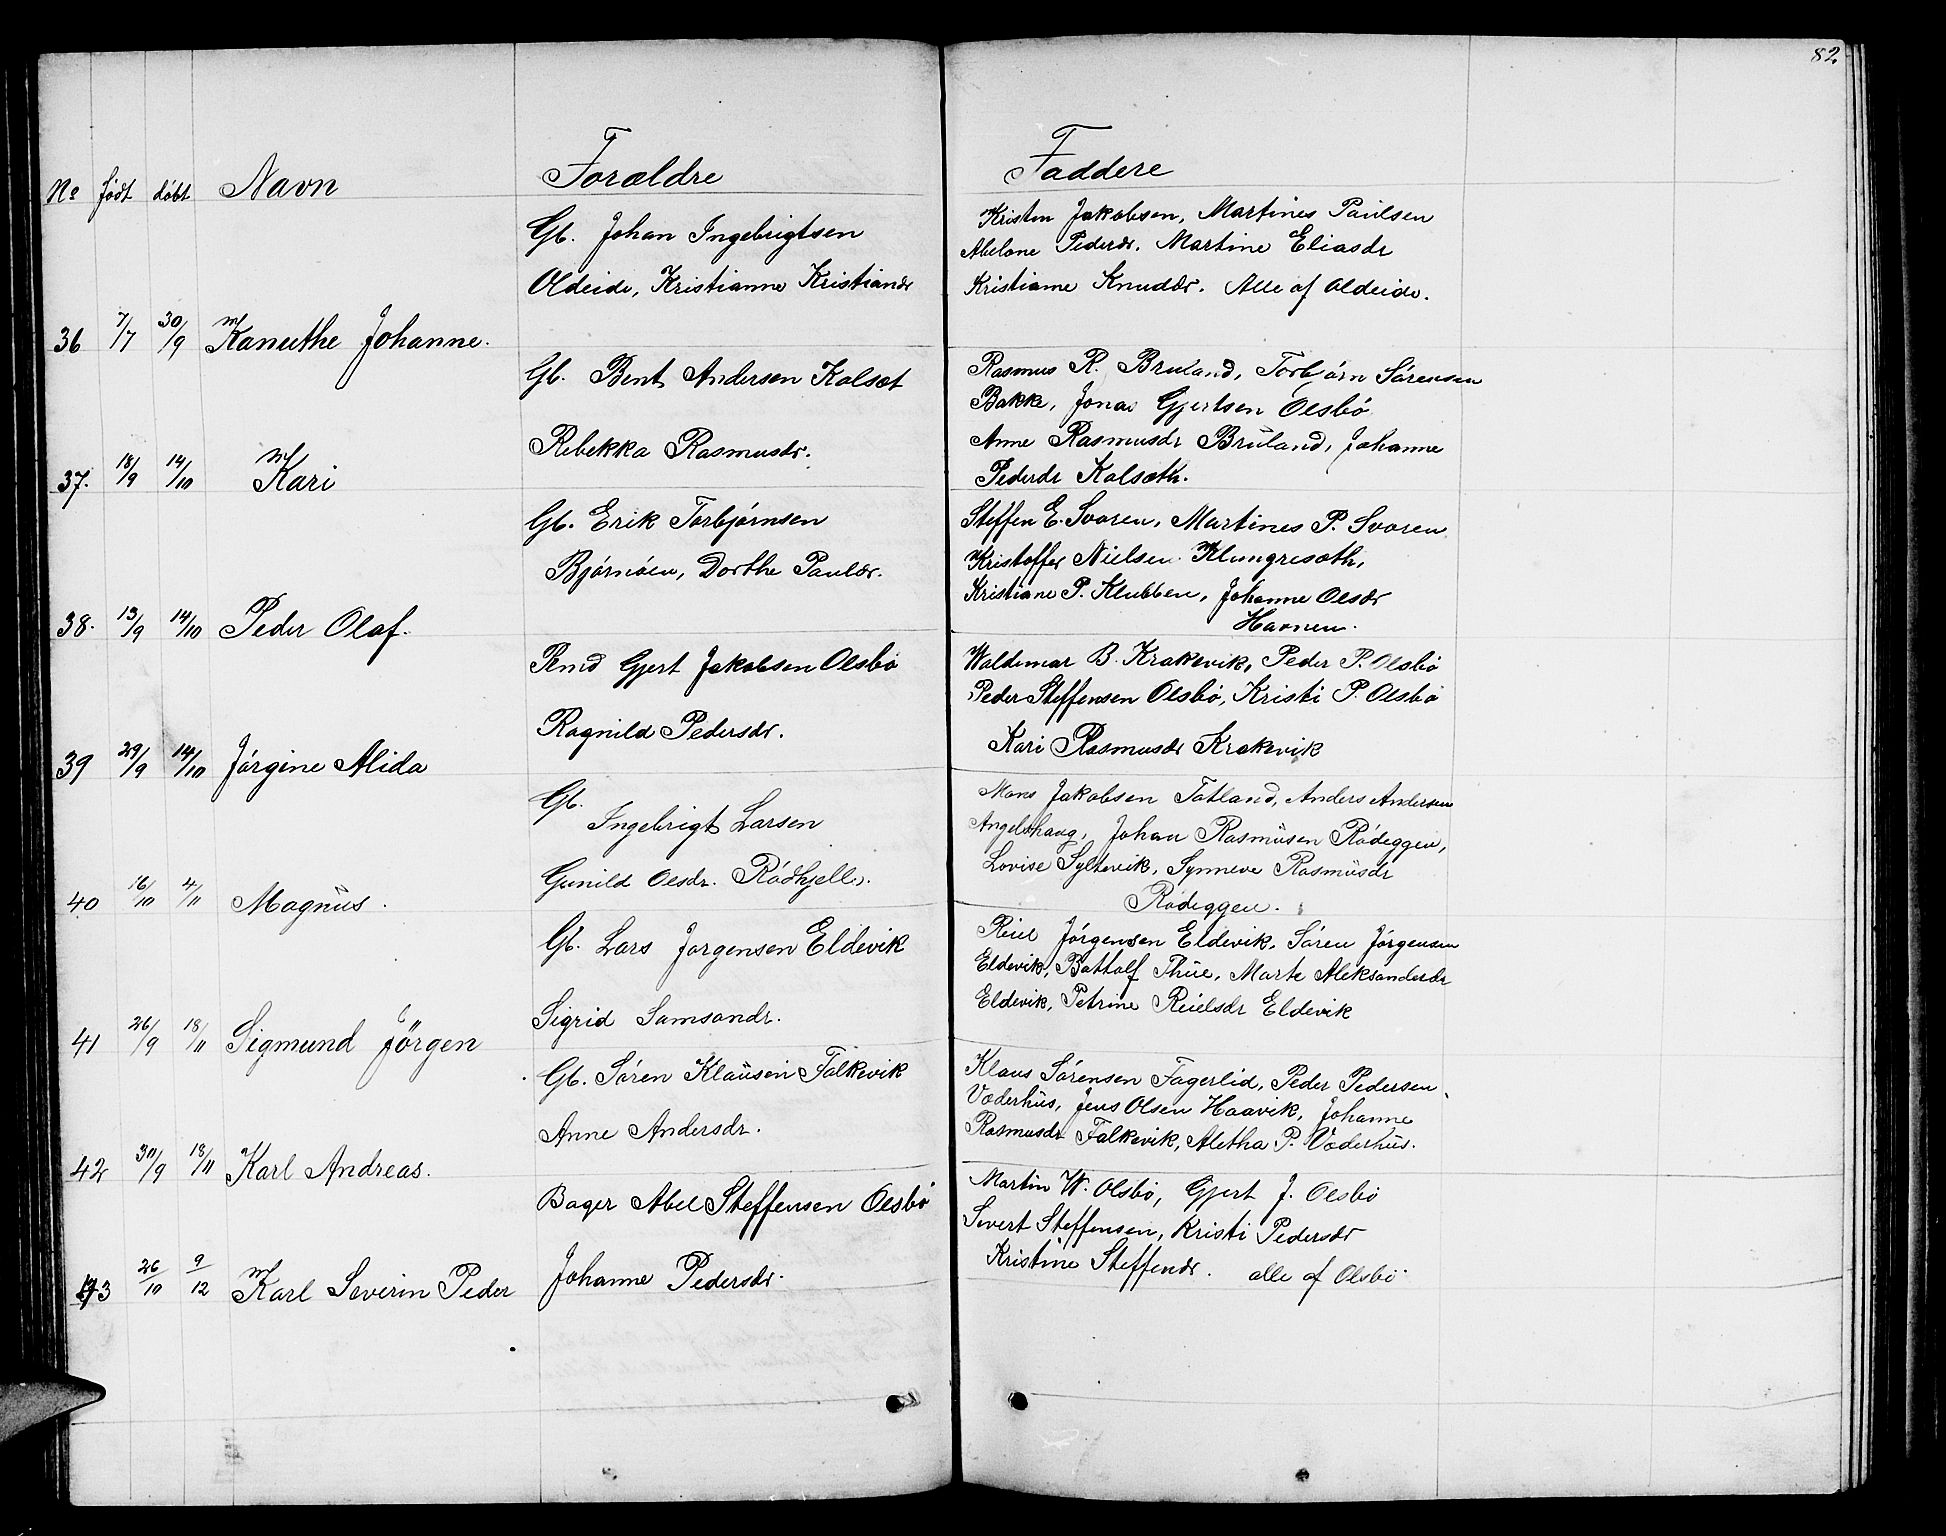 82
No født døbt Navn Forældre Faddere
Gb. Johan Ingebrigtsen
Oldeide, Kristianne Kristiandr
36 7/7 30/9 Kanuthe Johanne.
Kristen Jakobsen, Martines Paulsen
Abelone Pederdr. Martine Eliasdr
Kristianne Knuddr. Alle af Oldeide.
Gb. Bent Andersen Kalsæt
Rebekka Rasmusdr.
37. 18/9 14/10 Kari
Rasmus R. Bruland, Torbjørn Sørensen
Bakke, Jonas Gjertsen Olsbø
Anne Rasmusdr Bruland, Johanne
Pederdr Kalsæth.
Gb. Erik Torbjørnsen
Bjørnøen, Dorthe Pauldr.
38. 13/9 14/10 Peder Olaf.
Steffen E. Svoren, Martines P. Svoren
Kristoffer Nielsen Klungresæth,
Kristiane P. Klubben, Johanne Olsdr
Havnen.
Gjert Jakobsen Olsbø
Ragnild Pedersdr.
39 29/9 14/10 Jørgine Alida
Waldemar B. Krakevik, Peder P. Olsbø
Peder Steffensen Olsbø, Kristi P. Olsbø
Kari Rasmusdr Krakevik
Gb.
Ingebrigt Larsen
Gunild Olsdr. Rødhjell.
40 16/10 4/11 Magnus.
Mons Jakobsen Tatland, Anders Andersen
Angelshaug, Johan Rasmusen Rødeggen,
Lovise Syltevik, Synneve Rasmusdr
Rødeggen.
Gb. Lars Jørgensen Eldevik
Sigrid Samsondr.
41 26/9 18/11 Sigmund Jörgen
Reiel Jørgensen Eldevik, Søren Jørgensen
Eldevik, Bottolf Thue, Marte Aleksanderdr
Eldevik, Petrine Reielsdr Eldevik
Gb. Søren Klausen Falkevik
Anne Andersdr.
42 30/9 18/11 Karl Andreas.
Klaus Sørensen Fagerlid, Peder Pedersen
Vaderhus, Jens Olsen Haavik, Johanne
Rasmusdr Falkevik, Aletha P. Vaderhus.
Bager Abel Steffensen Olsbø
Johanne Pedersdr.
43 26/10 9/12 Karl Severin Peder
Martin W. Olsbø, Gjert J. Olsbø
Sivert Steffensen, Kristi Pedersdr
Kristine Steffendr. alle af Olsbø